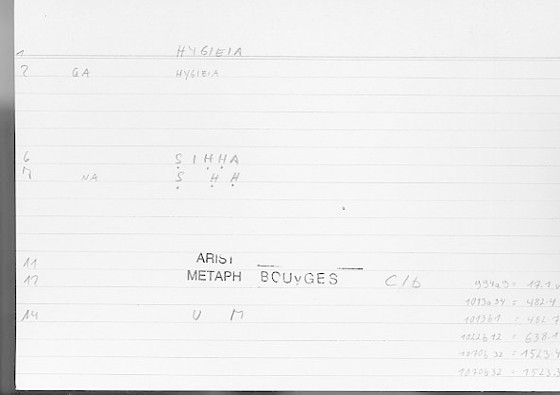 1 HYGIEIA
2 GA HYGIEIA
6 Ṣ I Ḥ Ḥ A
7 NA Ṣ Ḥ Ḥ
11 ARIST
12 METAPH BOUYGES C/b
14 U M
1013a34 = 482.4
1013b1 = 482.7
1022b12 = 638.1
1070b32 = 1523.4
1070b32 = 1523.3